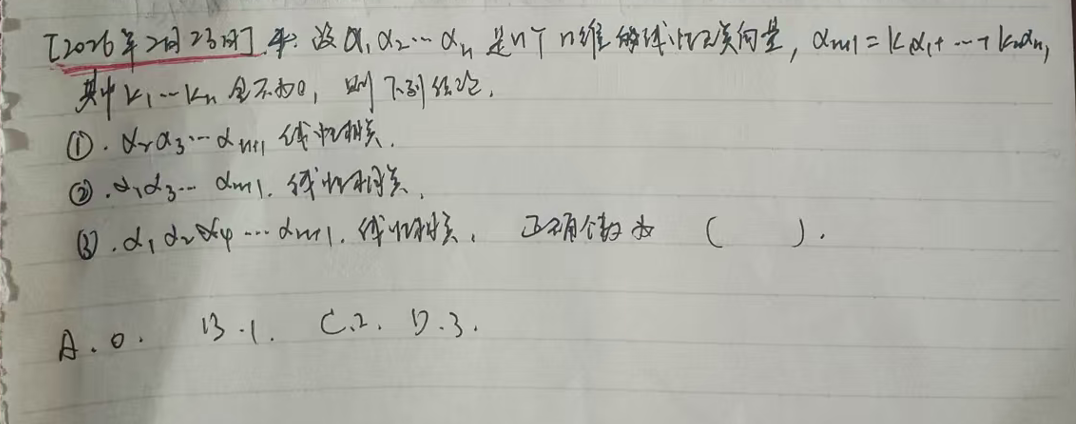 [2026年2月23日] 4: 设α₁ α₂…αₙ 是n个n维的线性无关向量, αₙ₊₁=k₁α₁+…+kₙαₙ,
其中 k₁…kₙ 全不为0, 则下列结论,
①. α₂α₃…αₙ₊₁ 线性相关.
②. α₁α₃… αₙ₊₁. 线性相关.
③. α₁ α₂ α₄ …αₙ₊₁. 线性相关. 正确个数为 ( ).
A. 0. B. 1. C. 2. D. 3.